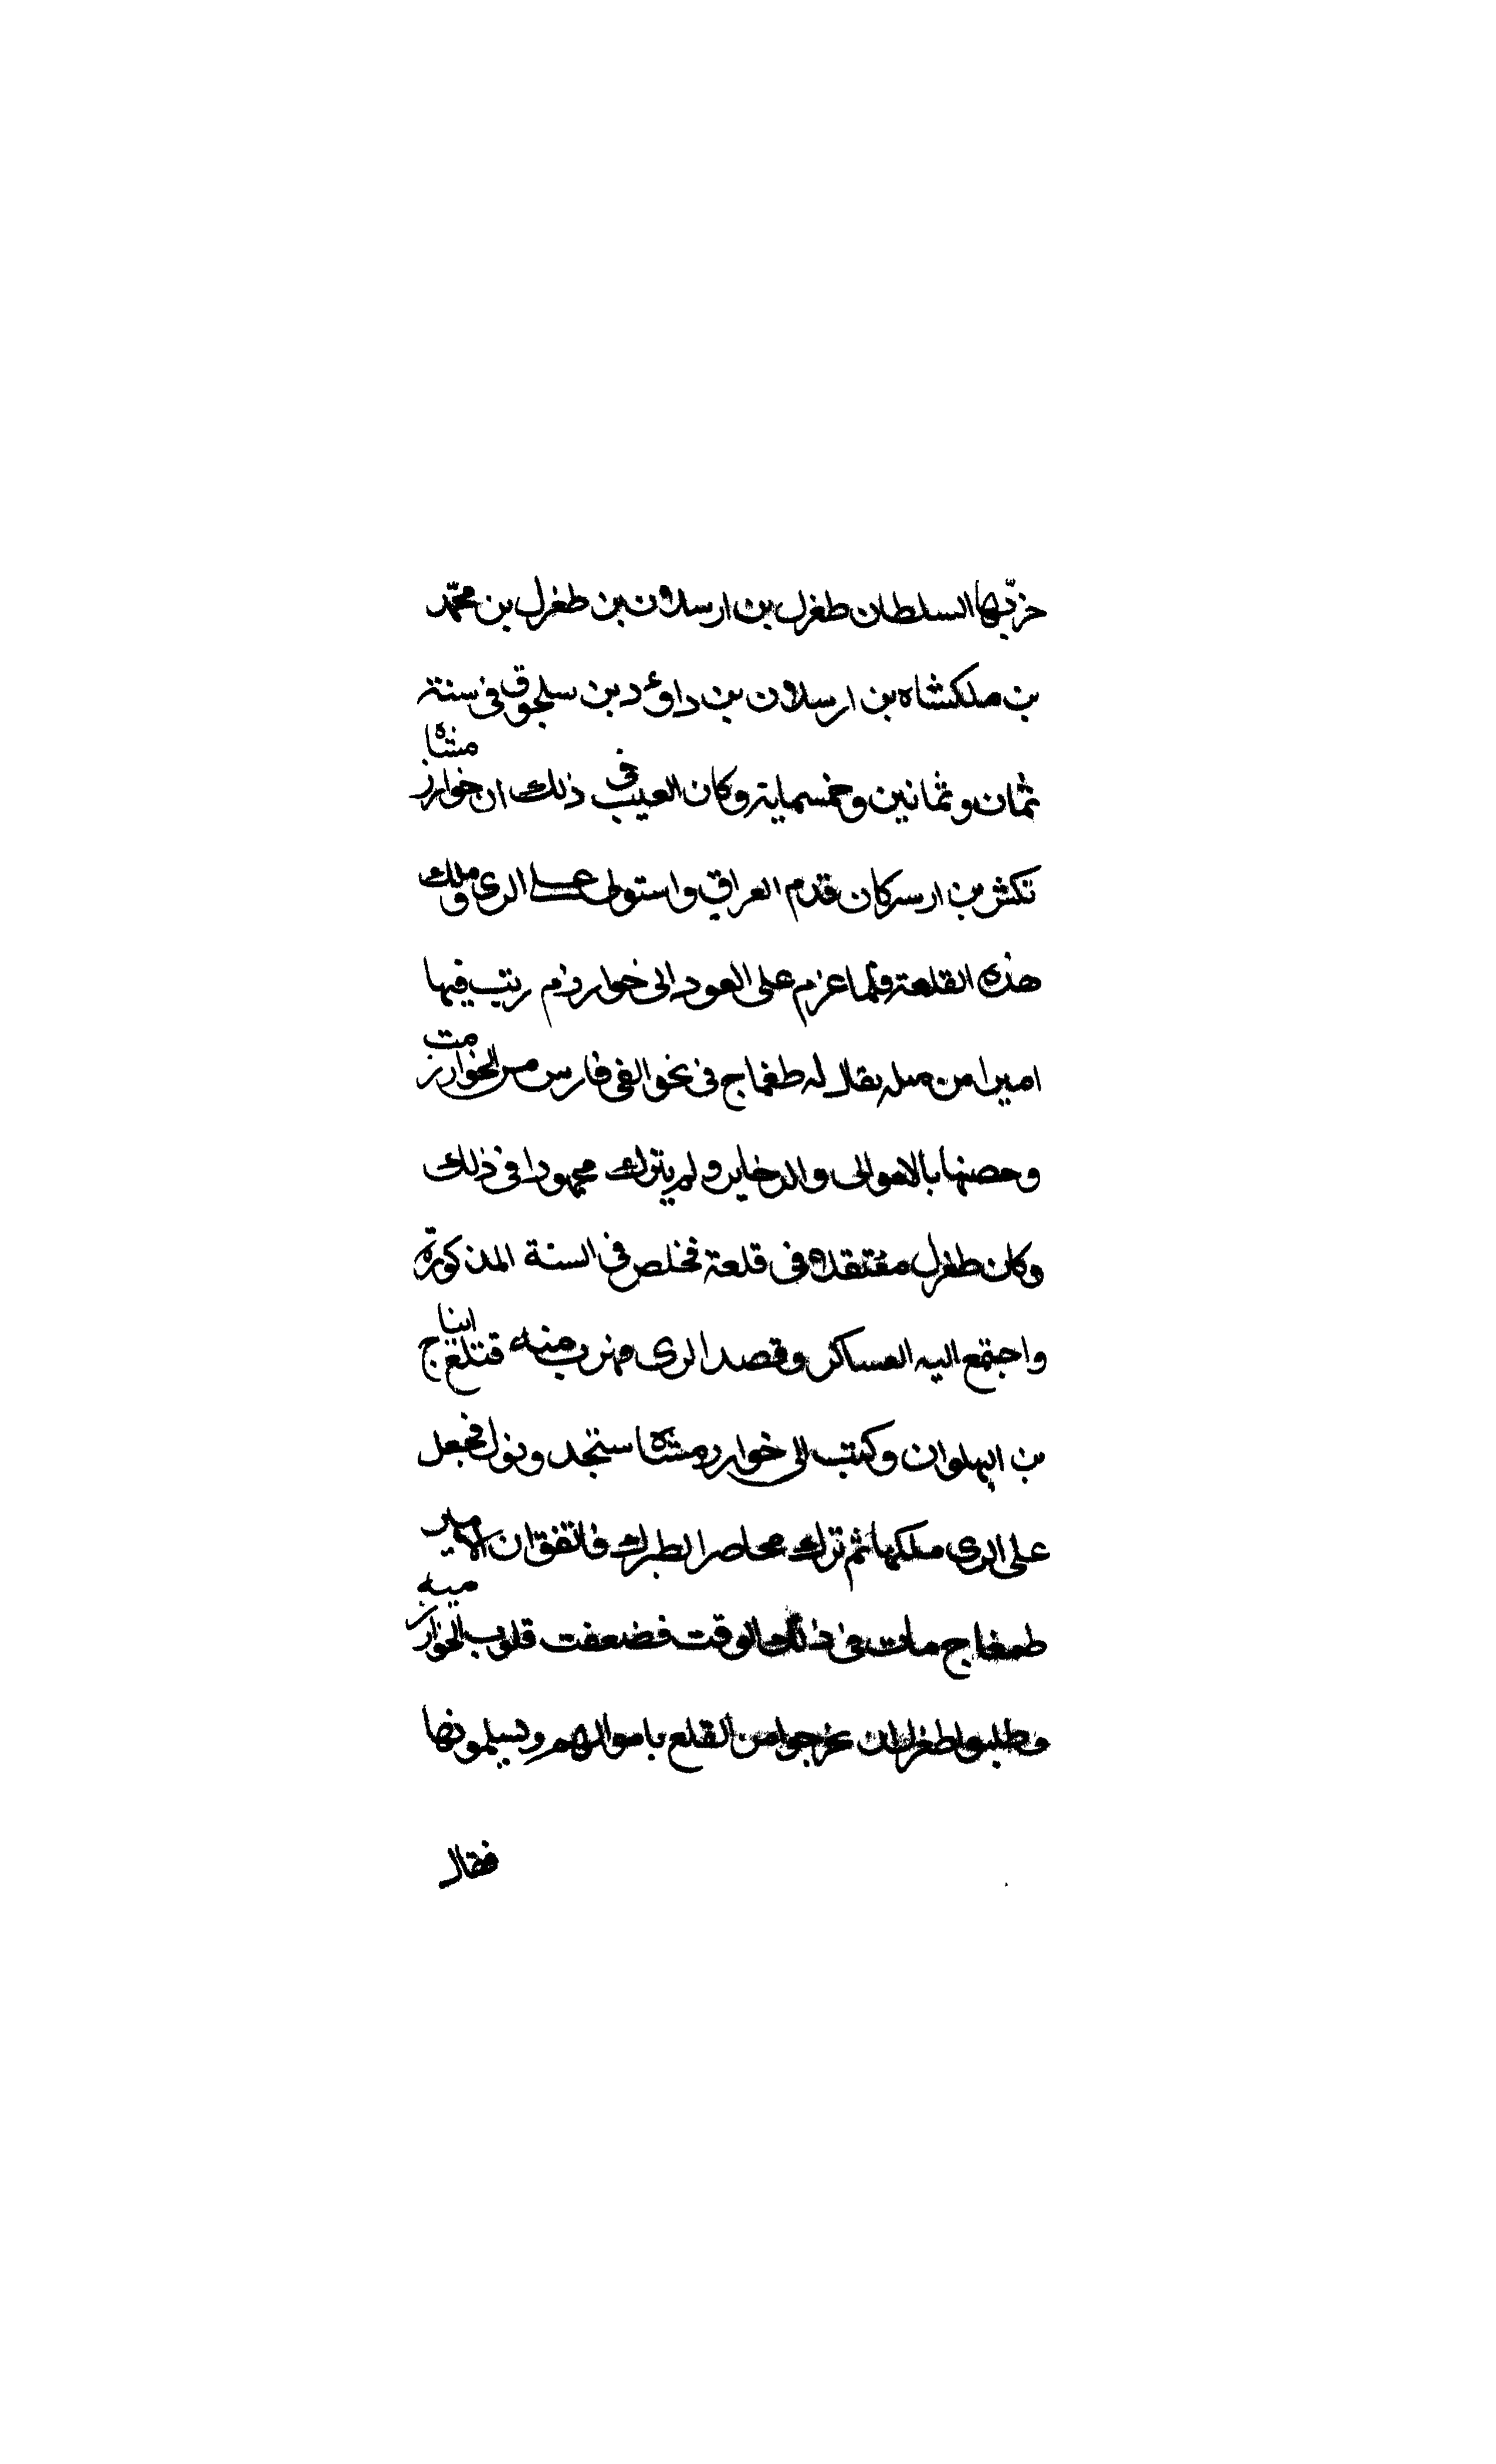 خربّها السلطان طغرل بن ارسلان بن طغرل بن محمّد
بن ملكشاه بن ارسلان بن داوٴد بن سلجوق فى سنة
ثمان وثمانين وخمسماية وكان العيب فى ذلك ان خوارزمشاه
تكش بن ارسركان قدم العراق واستولى على الرى وملك
هذه القلعة فلما عزم على العود الى خوارزم رتب فيها
اميرا من يقال له طمغاج فى نحو الفى فارس من الخوارزمت
وحصنها بالاموالى والدخاير ولم يترك مجهودا فى ذلك
وكان طغرل معتقلاه فى قلعة فخلص فى السنة المذكورة
واجتمع اليه العساكر وقصد الرى فهرب منه قتلغ اينانج
بن البهلوان وكتب الى خواررمشاه استنجد ونزل فجعل
على الرى ملكها ثم ترك محاصرا لطبرك فاتفق ان الامير
طمغاج مات فى ذلك الوقت فضعفت قلوب الخوارزميه
وطلبوا طغرل ان يخرجوا من القلع باموالهم ويسلمونها
فقال